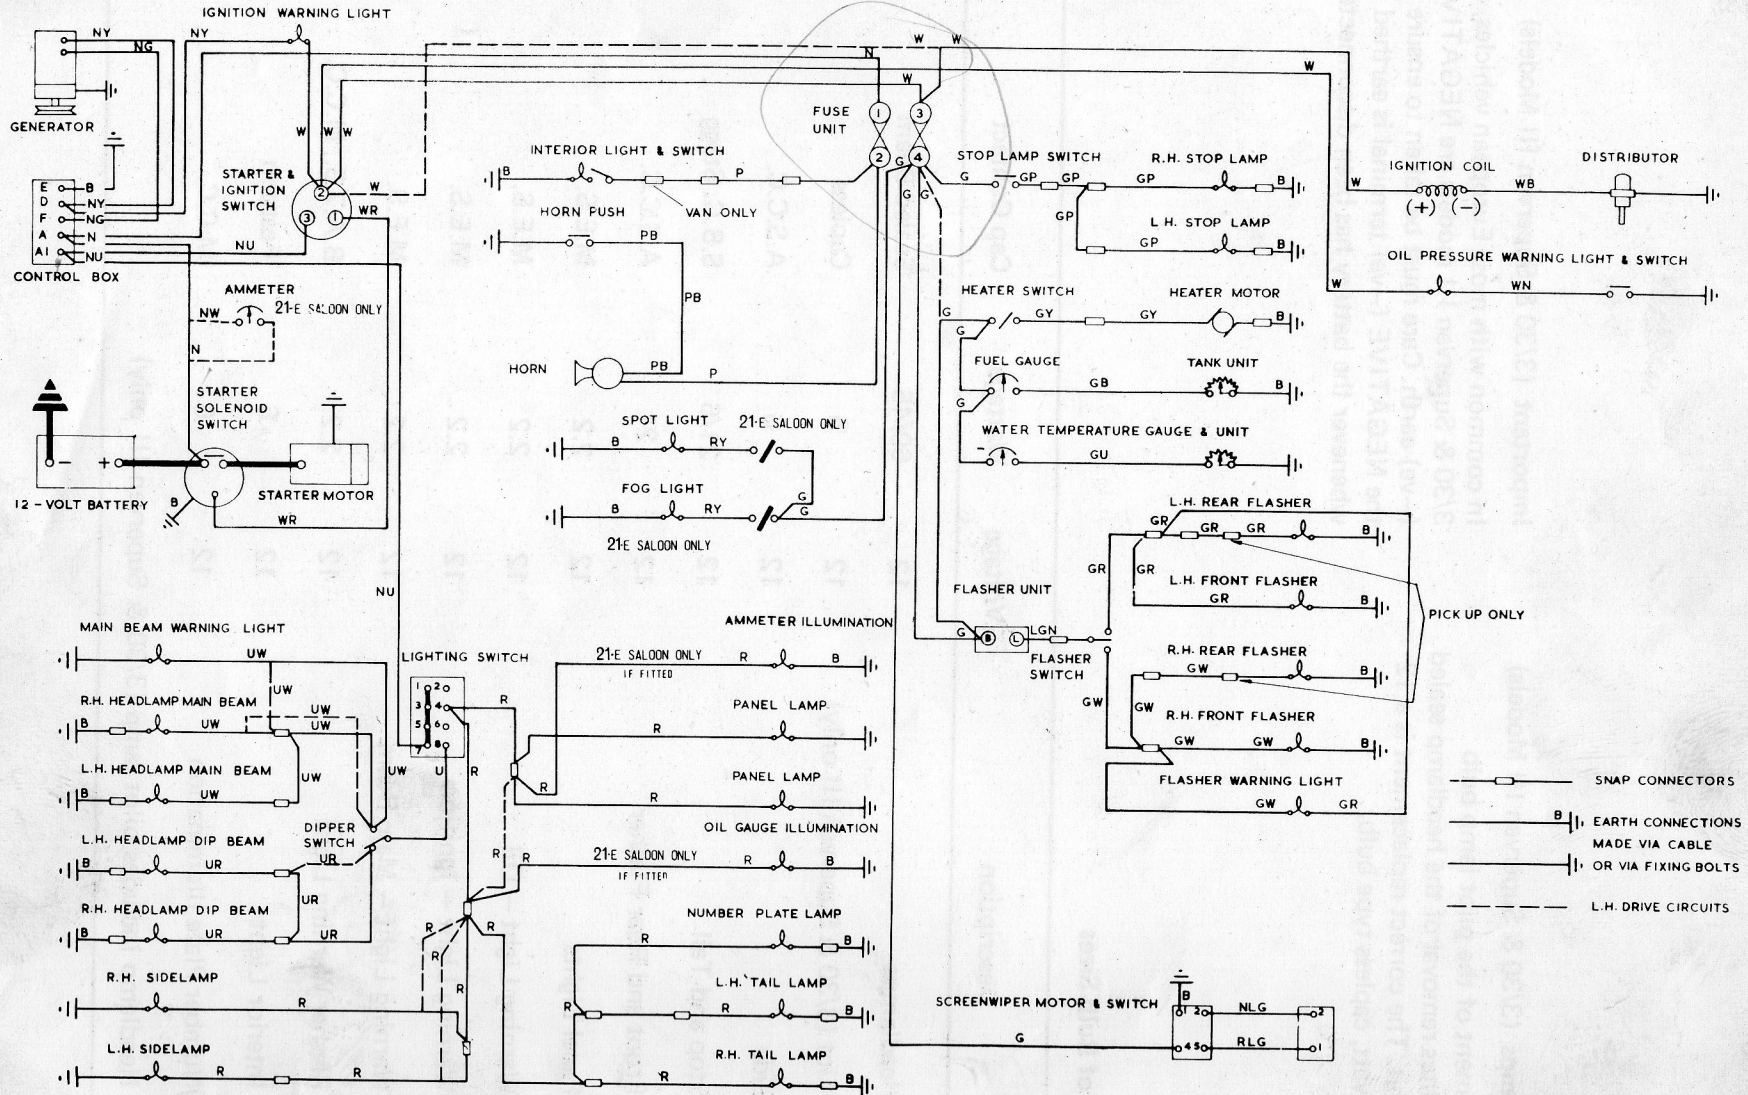 IGNITION WARNING LIGHT
NY
NG
NY
GENERATOR
E
D
F
A
A1
B
NY
NG
N
NU
CONTROL BOX
STARTER &
IGNITION
SWITCH
W
W
W
2
3
1
W
WR
NU
AMMETER
21-E SALOON ONLY
NW
N
STARTER
SOLENOID
SWITCH
-
+
12-VOLT BATTERY
B
STARTER MOTOR
WR
NU
N
W
W
W
W
FUSE
UNIT
1
3
2
4
G
G
G
INTERIOR LIGHT & SWITCH
B
P
VAN ONLY
HORN PUSH
PB
PB
HORN
PB
P
SPOT LIGHT
21-E SALOON ONLY
B
RY
FOG LIGHT
B
RY
G
G
21-E SALOON ONLY
STOP LAMP SWITCH
G
GP
GP
R.H. STOP LAMP
GP
B
GP
L.H. STOP LAMP
GP
B
HEATER SWITCH
HEATER MOTOR
G
G
GY
GY
B
FUEL GAUGE
TANK UNIT
G
GB
B
WATER TEMPERATURE GAUGE & UNIT
GU
IGNITION COIL
DISTRIBUTOR
W
WB
(+) (-)
OIL PRESSURE WARNING LIGHT & SWITCH
W
WN
L.H. REAR FLASHER
GR
GR
GR
B
L.H. FRONT FLASHER
GR
GR
GR
B
PICK UP ONLY
FLASHER UNIT
G
B
L
LGN
FLASHER
SWITCH
R.H. REAR FLASHER
GW
B
GW
GW
R.H. FRONT FLASHER
GW
GW
B
FLASHER WARNING LIGHT
GW
GR
MAIN BEAM WARNING LIGHT
UW
UW
R.H. HEADLAMP MAIN BEAM
B
UW
UW
UW
L.H. HEADLAMP MAIN BEAM
B
UW
UW
UW
L.H. HEADLAMP DIP BEAM
B
UR
UR
DIPPER
SWITCH
R.H. HEADLAMP DIP BEAM
B
UR
UR
UR
R.H. SIDELAMP
R
L.H. SIDELAMP
R
R
LIGHTING SWITCH
1 2
3 4
5 6
7 8
U
R
R
R
R
R
R
R
R
R
AMMETER ILLUMINATION
21-E SALOON ONLY
IF FITTED
R
B
PANEL LAMP
R
PANEL LAMP
R
OIL GAUGE ILLUMINATION
21-E SALOON ONLY
IF FITTED
R
B
NUMBER PLATE LAMP
R
B
L.H. TAIL LAMP
R
R
B
R.H. TAIL LAMP
R
B
SCREENWIPER MOTOR & SWITCH
G
B
1 2
4 5
NLG
RLG
2
1
SNAP CONNECTORS
B
EARTH CONNECTIONS
MADE VIA CABLE
OR VIA FIXING BOLTS
L.H. DRIVE CIRCUITS